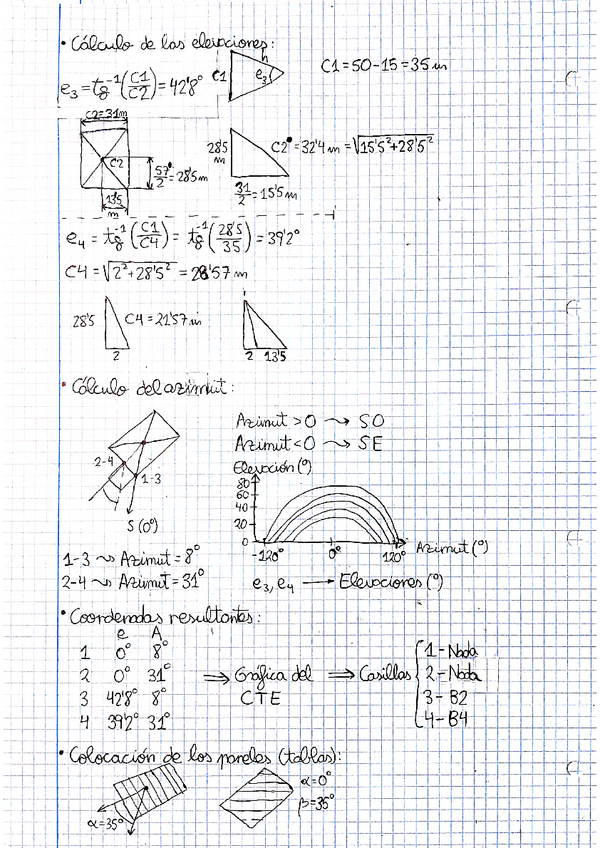 • Cálculo de las elevaciones:
e₃ = tg⁻¹(C1/C2) = 42'8°
C1
h
e₃
C1 = 50-15 = 35 m
C2 = 31m
C2
57/2 = 28'5m
13'5
m
28'5
m
C2 = 32'4 m = √15'5²+28'5²
31/2 = 15'5m
e₄ = tg⁻¹(C1/C4) = tg⁻¹(28'5/35) = 39'2°
C4 = √2²+28'5² = 28'57 m
28'5
C4 = 21'57 m
2
2 13'5
• Cálculo del azimut:
2-4
1-3
S (0°)
Azimut > 0 ⇝ SO
Azimut < 0 ⇝ SE
Elevación (°)
80
60
40
20
0
-120° 0° 120° Azimut (°)
1-3 ⇝ Azimut = 8°
2-4 ⇝ Azimut = 31°
e₃, e₄ ⟶ Elevaciones (°)
• Coordenadas resultantes:
e A
1 0° 8°
2 0° 31°
3 42'8° 8°
4 39'2° 31°
⇒ Gráfica del
CTE
⇒ Casillas
1 - Nada
2 - Nada
3 - B2
4 - B4
• Colocación de los paneles (tablas):
α = 35°
α = 0°
β = 35°